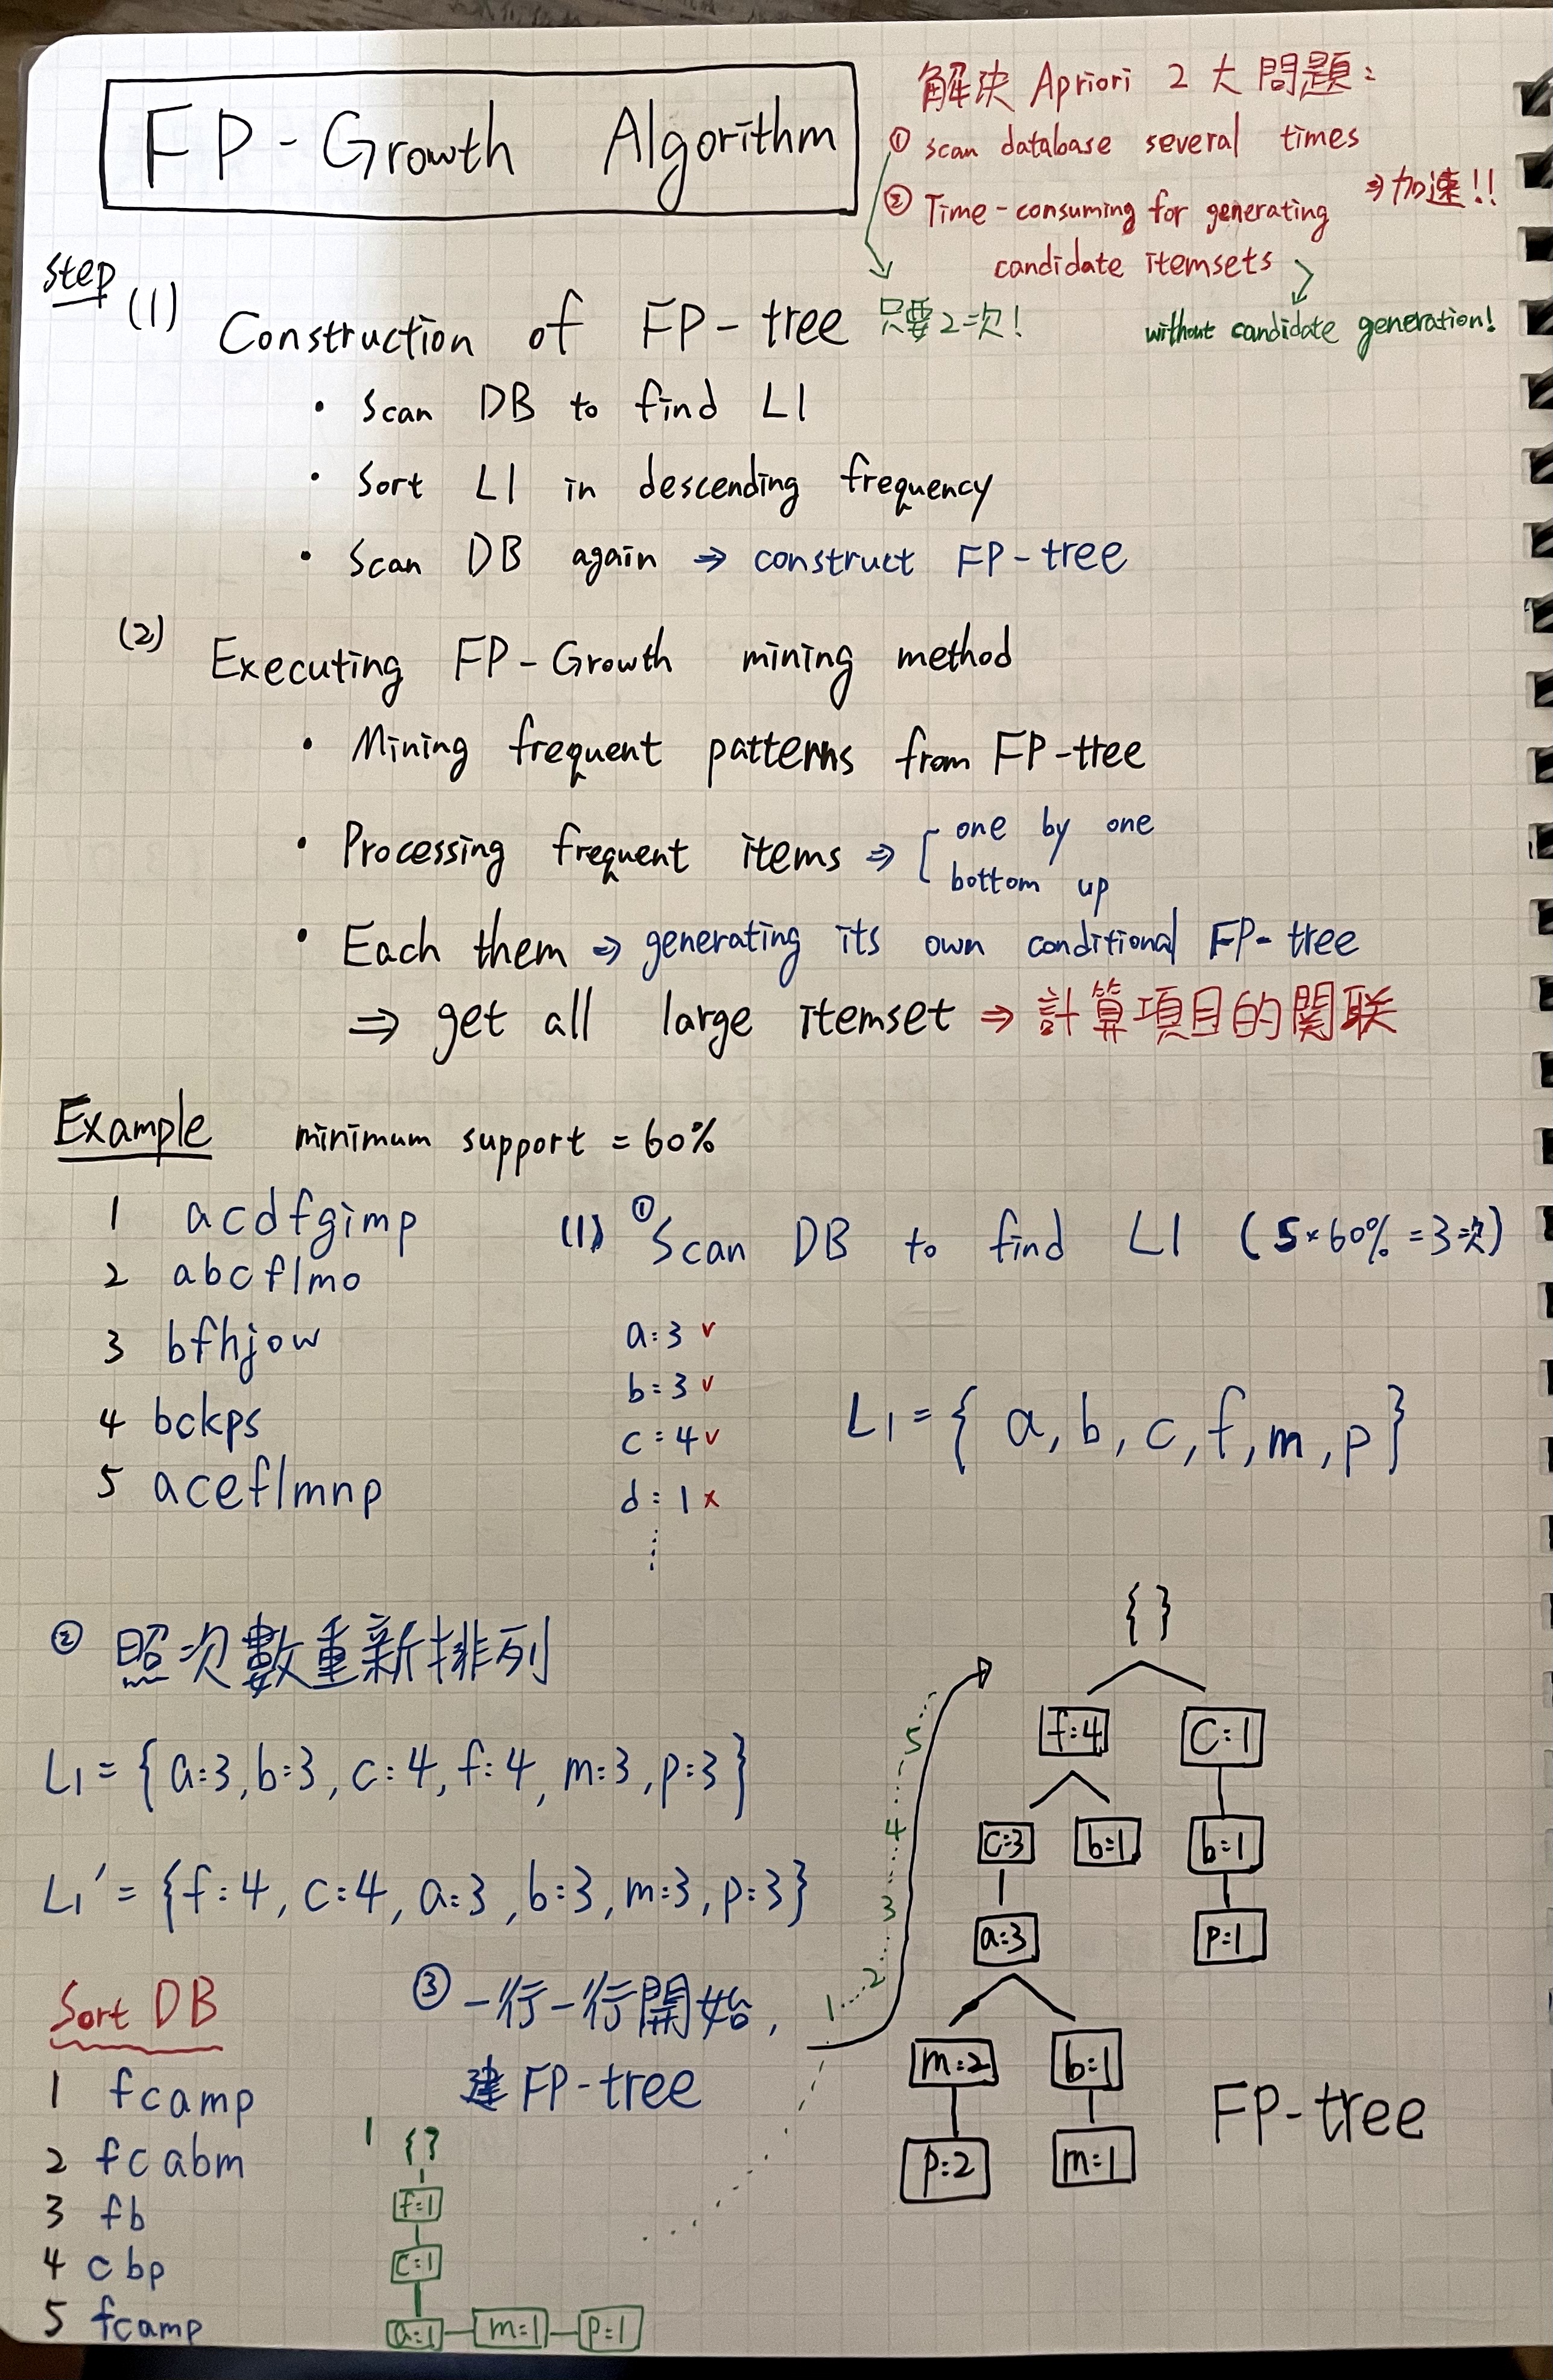 FP-Growth Algorithm
解決 Apriori 2 大問題:
① scan database several times
② Time-consuming for generating
candidate itemsets
⇒加速!!
只要2次!
without candidate generation!
step
(1) Construction of FP-tree
• Scan DB to find L1
• Sort L1 in descending frequency
• Scan DB again ⇒ construct FP-tree
(2) Executing FP-Growth mining method
• Mining frequent patterns from FP-tree
• Processing frequent items ⇒ [ one by one
bottom up
• Each them ⇒ generating its own conditional FP-tree
⇒ get all large itemset ⇒ 計算項目的関联
Example minimum support = 60%
1 acdfgimp
2 abcflmo
3 bfhjow
4 bckps
5 aceflmnp
(1) ① Scan DB to find L1 (5×60% = 3次)
a:3 v
b:3 v
c:4 v
d:1 x
⋮
L1 = { a, b, c, f, m, p }
② 照次數重新排列
L1 = { a:3, b:3, c:4, f:4, m:3, p:3 }
L1' = { f:4, c:4, a:3, b:3, m:3, p:3 }
Sort DB
1 fcamp
2 fcabm
3 fb
4 cbp
5 fcamp
③ 一行一行開始,
建 FP-tree
1 {}
f:1
c:1
a:1 m:1 p:1
1 2 3 4 5
{ }
f:4 C:1
c:3 b:1 b:1
a:3 p:1
m:2 b:1
p:2 m:1
FP-tree